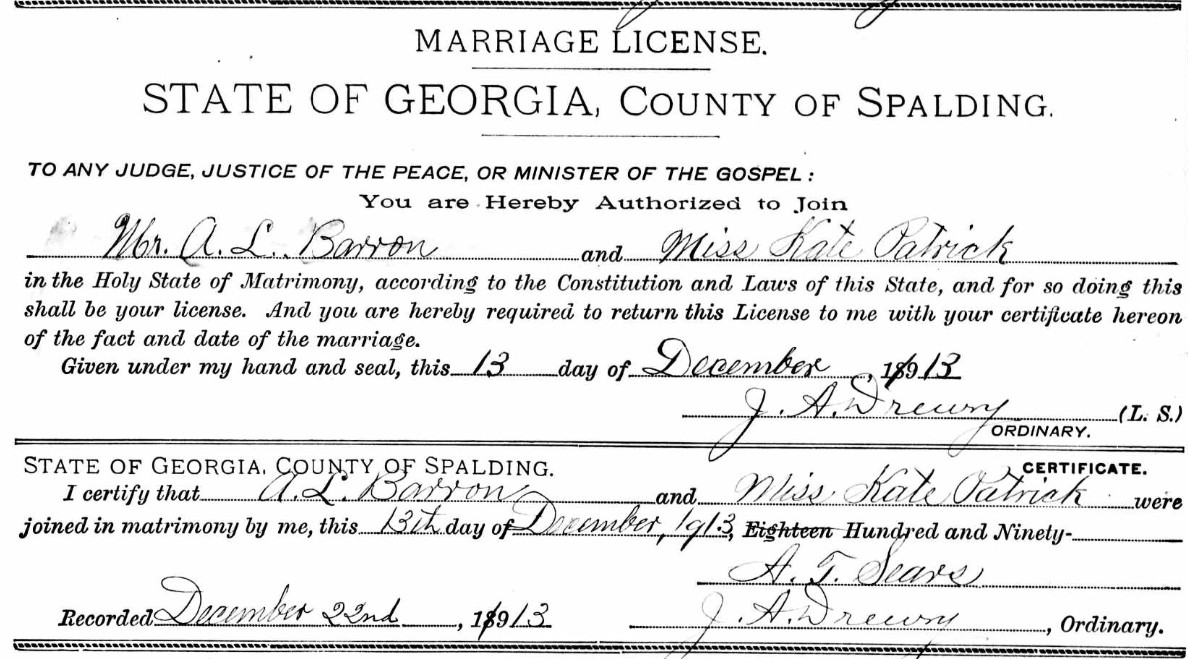 MARRIAGE LICENSE.
STATE OF GEORGIA, COUNTY OF SPALDING.
TO ANY JUDGE, JUSTICE OF THE PEACE, OR MINISTER OF THE GOSPEL:
You are Hereby Authorized to Join
Mr. A. L. Barron and Miss Kate Patrick
in the Holy State of Matrimony, according to the Constitution and Laws of this State, and for so doing this
shall be your license. And you are hereby required to return this License to me with your certificate hereon
of the fact and date of the marriage.
Given under my hand and seal, this 13 day of December, 1913
J. A. Drewry (L. S.)
ORDINARY.
STATE OF GEORGIA, COUNTY OF SPALDING. CERTIFICATE.
I certify that A. L. Barron and Miss Kate Patrick were
joined in matrimony by me, this 13th day of December, 1913, Eighteen Hundred and Ninety-
A. T. Sears
Recorded December 22nd, 1913 J. A. Drewry, Ordinary.